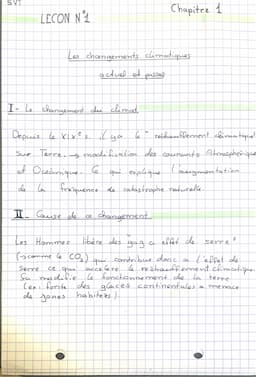 SVT
Chapitre 1
LECON N°1
Les changements climatiques
actuel et passés
I - Le changement du climat
Depuis le XIXe s. il y a le "réchauffement climatique"
sur Terre. → modification des courants Atmosphérique
et Océanique. Ce qui explique l'augmentation
de la fréquence de catastrophe naturelle
II - Cause de ce changement
Les Hommes libère des "gaz à effet de serre"
(→ comme le CO2) qui contribue donc a l'effet de
serre ce qui accelere le réchauffement climatique.
Sa modifie le fonctionnement de la terre
(ex: fonte des glaces continentales = menace
de zones habitées)